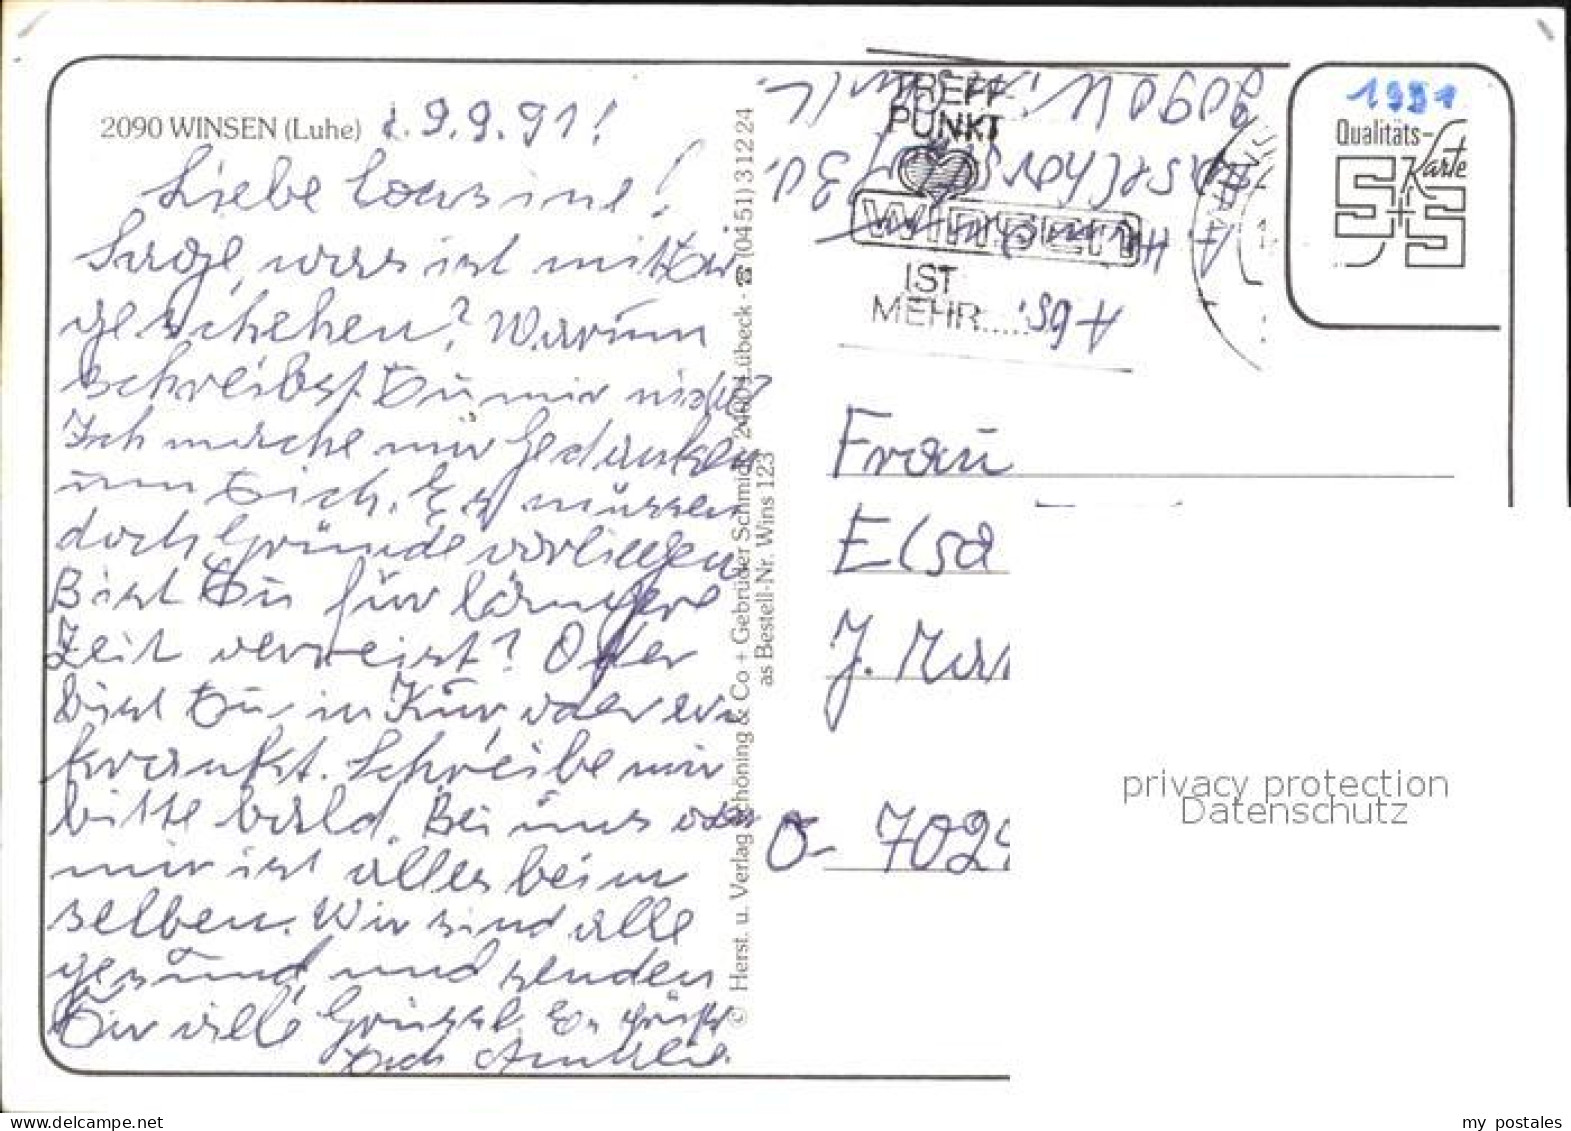 2090 WINSEN (Luhe) d. 9.9.91!
Liebe Cousine!
Sage, was ist mit Dir
geschehen? Warum
schreibst Du mir nicht?
Ich mache mir Gedanken
um Dich. Es müssen
doch Gründe vorliegen
Bist Du für längere
Zeit verreist? Oder
bist Du in Kur, oder er-
krankt. Schreibe mir
bitte bald. Bei uns
mir ist alles beim
selben. Wir sind alle
gesund und senden
Dir viele Grüsse Es grüßt
Dich
© Herst. u. Verlag Schöning & Co + Gebrüder Schmidt · 2400 Lübeck · ☎ (0451) 31224
as Bestell-Nr. Wins 123
TREFF
PUNKT
WINSEN
IST
MEHR.....
Abs.
2090
30
1991
Qualitäts-
Karte
S+S
Frau
Elsa
J. Mar
O- 702
privacy protection
Datenschutz
my postales